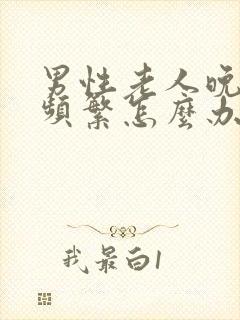 男性老人晚
頻繁怎麼办
我最白1